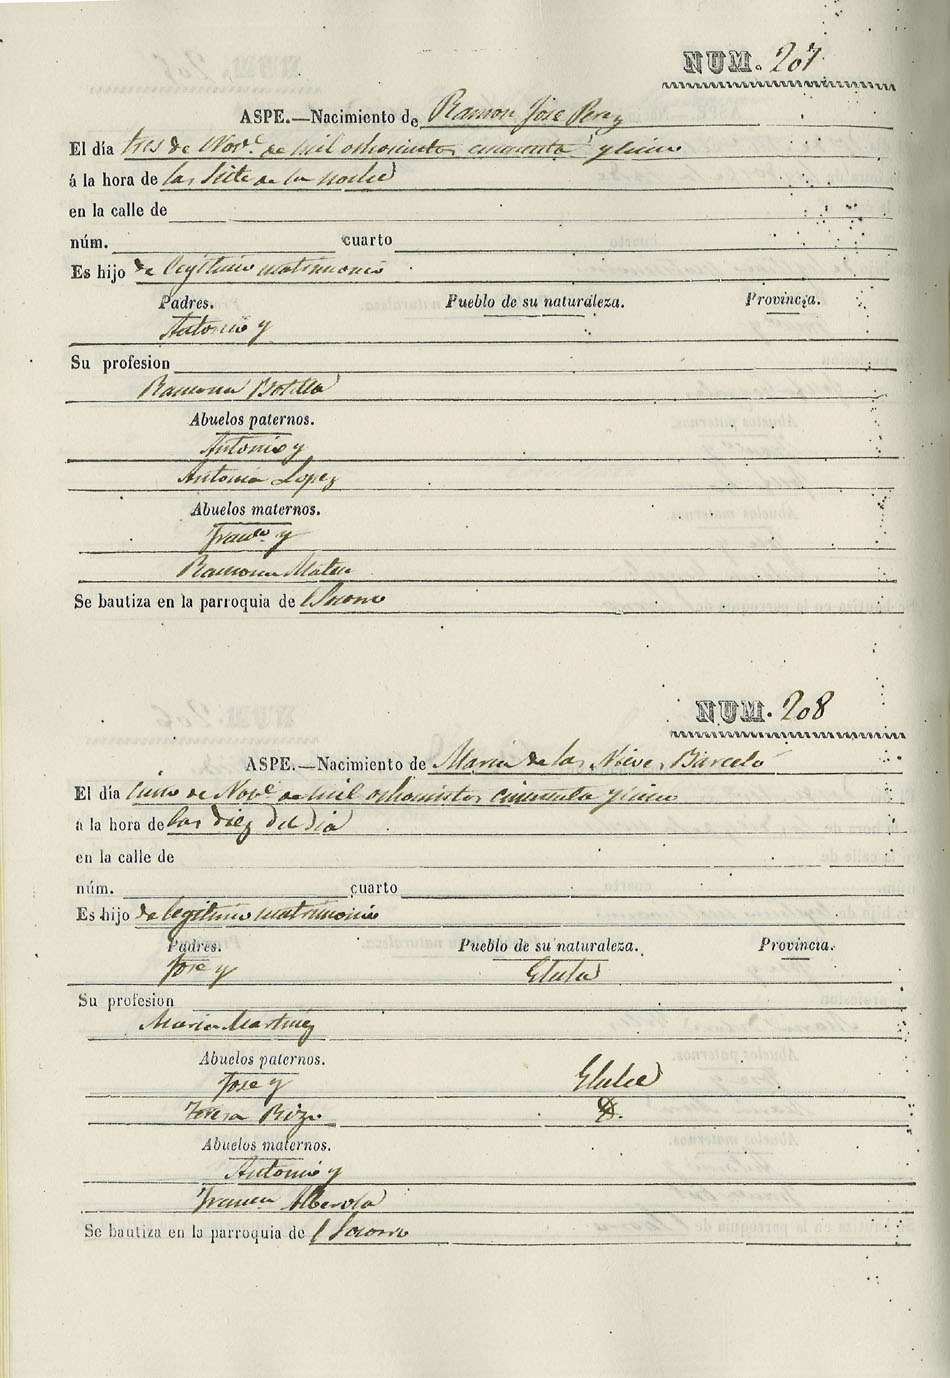 NUM. 207
ASPE.—Nacimiento de Ramon Jose Perez
El día tres de Nov.e de mil ochocientos cincuenta y cinco
á la hora de las siete de la noche
en la calle de
núm. cuarto
Es hijo de legitimo matrimonio
Padres. Pueblo de su naturaleza. Provincia.
Antonio y
Su profesion
Ramona Botella
Abuelos paternos.
Antonio y
Antonia Lopez
Abuelos maternos.
Franco. y
Ramona Mateu
Se bautiza en la parroquia de l Socorro
NUM. 208
ASPE.—Nacimiento de Maria de las Nieves Barceló
El día cinco de Nov.e de mil ochocientos cincuenta y cinco
á la hora de las diez del dia
en la calle de
núm. cuarto
Es hijo de legitimo matrimonio
Padres. Pueblo de su naturaleza. Provincia.
Jose y Elda
Su profesion
Maria Martinez
Abuelos paternos.
Jose y Elda
Teresa Rizo
Abuelos maternos.
Antonio y
Franca Alberola
Se bautiza en la parroquia de l Socorro